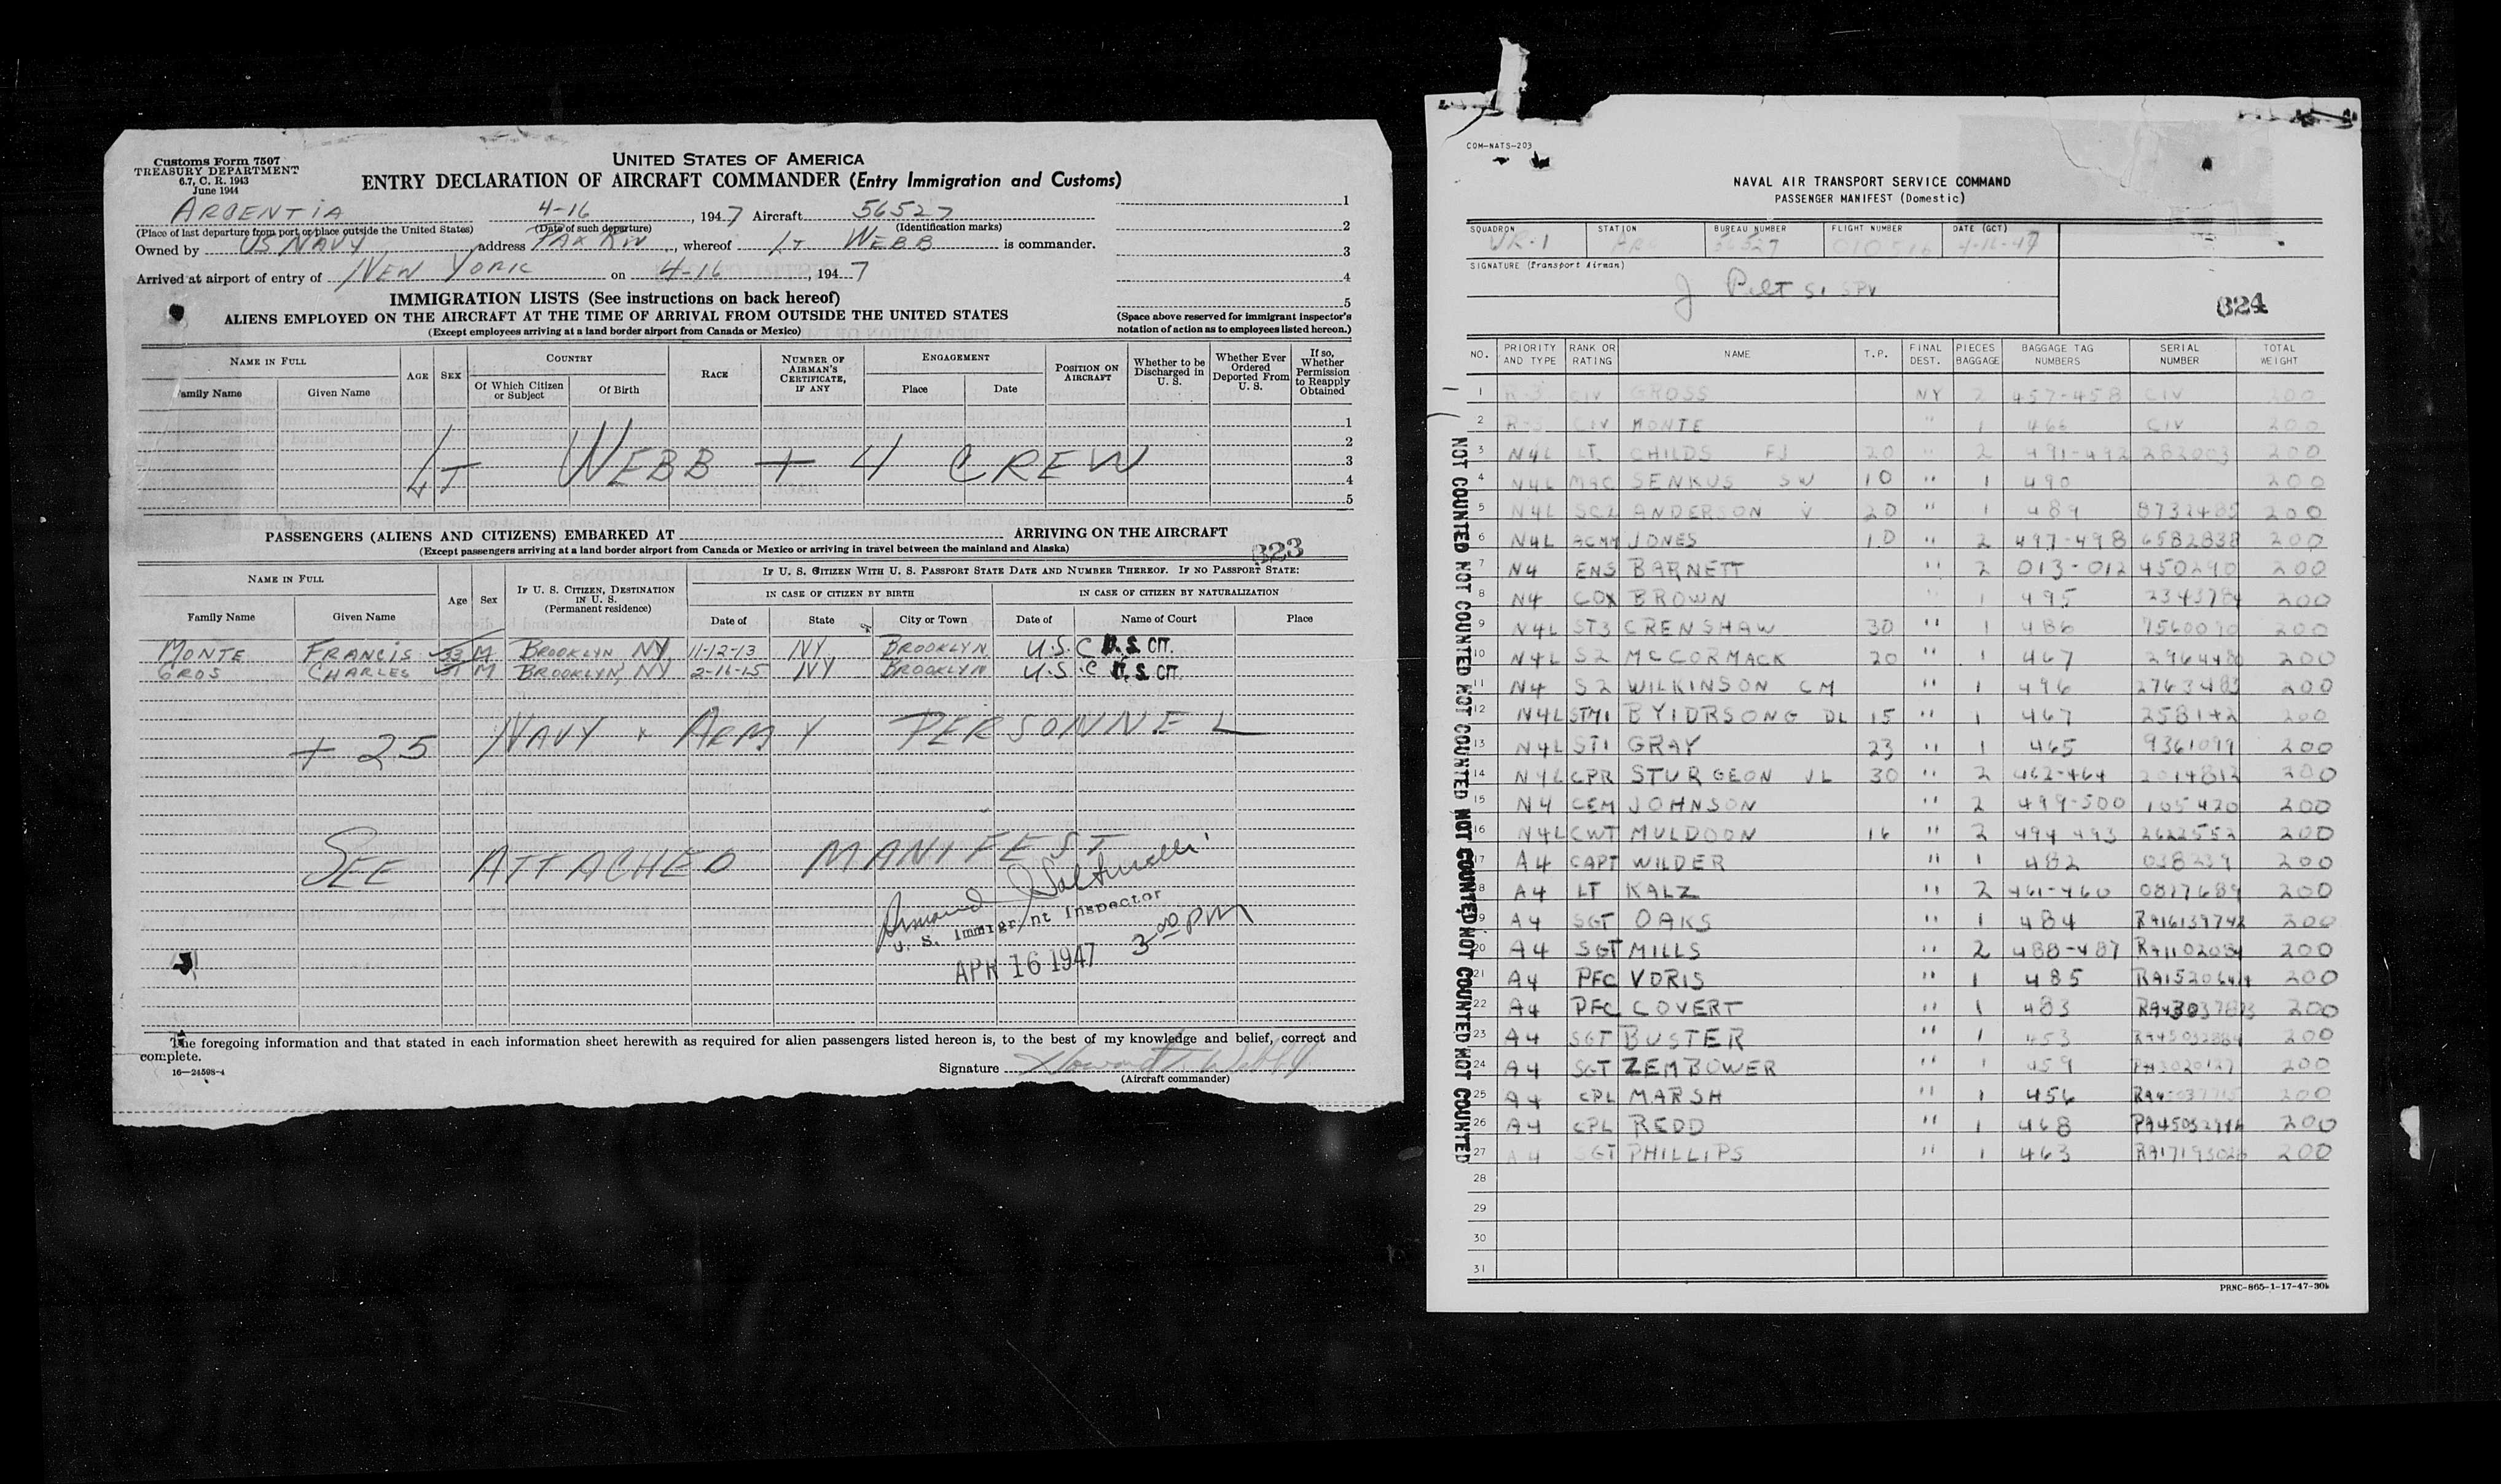 Customs Form 7507
TREASURY DEPARTMENT
6.7, C. R. 1943
June 1944
UNITED STATES OF AMERICA
ENTRY DECLARATION OF AIRCRAFT COMMANDER (Entry Immigration and Customs)
ARGENTIA 4-16, 1947 Aircraft 56527
(Place of last departure from port or place outside the United States) (Date of such departure) (Identification marks)
Owned by US NAVY, address PAX RIV, whereof LT WEBB is commander.
Arrived at airport of entry of NEW YORK on 4-16, 1947
1
2
3
4
5
(Space above reserved for immigrant inspector's notation of action as to employees listed hereon.)
IMMIGRATION LISTS (See instructions on back hereof)
ALIENS EMPLOYED ON THE AIRCRAFT AT THE TIME OF ARRIVAL FROM OUTSIDE THE UNITED STATES
(Except employees arriving at a land border airport from Canada or Mexico)
NAME IN FULL AGE SEX COUNTRY RACE NUMBER OF AIRMAN'S CERTIFICATE, IF ANY ENGAGEMENT POSITION ON AIRCRAFT Whether to be Discharged in U. S. Whether Ever Ordered Deported From U. S. If so, Whether Permission to Reapply Obtained
Family Name Given Name Of Which Citizen or Subject Of Birth Place Date
1
2
3
4
5
LT WEBB + 4 CREW
PASSENGERS (ALIENS AND CITIZENS) EMBARKED AT ARRIVING ON THE AIRCRAFT
(Except passengers arriving at a land border airport from Canada or Mexico or arriving in travel between the mainland and Alaska)
323
NAME IN FULL Age Sex IF U. S. CITIZEN, DESTINATION IN U. S. (Permanent residence) IF U. S. CITIZEN WITH U. S. PASSPORT STATE DATE AND NUMBER THEREOF. IF NO PASSPORT STATE:
IN CASE OF CITIZEN BY BIRTH IN CASE OF CITIZEN BY NATURALIZATION
Family Name Given Name Date of State City or Town Date of Name of Court Place
MONTE FRANCIS 33 M BROOKLYN NY 11-12-13 NY BROOKLYN U.S.C U.S. CIT.
GROS CHARLES M BROOKLYN, NY 2-16-15 NY BROOKLYN U.S.C U.S. CIT.
+ 25 NAVY + ARMY PERSONNEL
SEE ATTACHED MANIFEST
U. S. Immigrant Inspector
APR 16 1947 3 00 PM
The foregoing information and that stated in each information sheet herewith as required for alien passengers listed hereon is, to the best of my knowledge and belief, correct and
complete.
16—24598-4
Signature Howard Webb
(Aircraft commander)
COM-NATS-203
NAVAL AIR TRANSPORT SERVICE COMMAND
PASSENGER MANIFEST (Domestic)
SQUADRON STATION BUREAU NUMBER FLIGHT NUMBER DATE (GCT)
VR-1 ARG 56527 010516 4-16-47
SIGNATURE (Transport Airman)
J Pelt S1 SPV
324
NO. PRIORITY AND TYPE RANK OR RATING NAME T.P. FINAL DEST. PIECES BAGGAGE BAGGAGE TAG NUMBERS SERIAL NUMBER TOTAL WEIGHT
1 R-3 CIV GROSS NY 2 457-458 CIV 200
2 R-3 CIV MONTE " 1 466 CIV 200
3 N4L LT CHILDS FJ 20 " 2 491-492 282003 200
4 N4L MAC SENKUS SW 10 " 1 490 200
5 N4L SC2 ANDERSON V 20 " 1 489 8732485 200
6 N4L ACMM JONES 10 " 2 497-498 6582838 200
7 N4 ENS BARNETT " 2 013-012 450290 200
8 N4 COX BROWN " 1 495 2343784 200
9 N4L ST3 CRENSHAW 30 " 1 486 7560070 200
10 N4L S2 MCCORMACK 20 " 1 467 2964480 200
11 N4 S2 WILKINSON CM " 1 496 2763483 200
12 N4L STM1 BYIDRSONG DL 15 " 1 467 258142 200
13 N4L ST1 GRAY 23 " 1 465 9361099 200
14 N4L CPR STURGEON VL 30 " 2 462-464 2014812 200
15 N4 CEM JOHNSON " 2 499-500 165420 200
16 N4L CWT MULDOON 16 " 2 494 493 2622552 200
17 A4 CAPT WILDER " 1 482 038239 200
18 A4 LT KALZ " 2 461-460 0817689 200
19 A4 SGT OAKS " 1 484 RA16139742 200
20 A4 SGT MILLS " 2 488-487 RA1102034 200
21 A4 PFC VORIS " 1 485 RA1520644 200
22 A4 PFC COVERT " 1 483 200
23 A4 SGT BUSTER " 1 453 RA45032884 200
24 A4 SGT ZEMBOWER " 1 459 200
25 A4 CPL MARSH " 1 456 200
26 A4 CPL REDD " 1 468 200
27 A4 SGT PHILLIPS " 1 463 200
28
29
30
31
NOT COUNTED NOT COUNTED NOT COUNTED NOT COUNTED NOT COUNTED NOT COUNTED NOT COUNTED
PRNC-865-1-17-47-30k